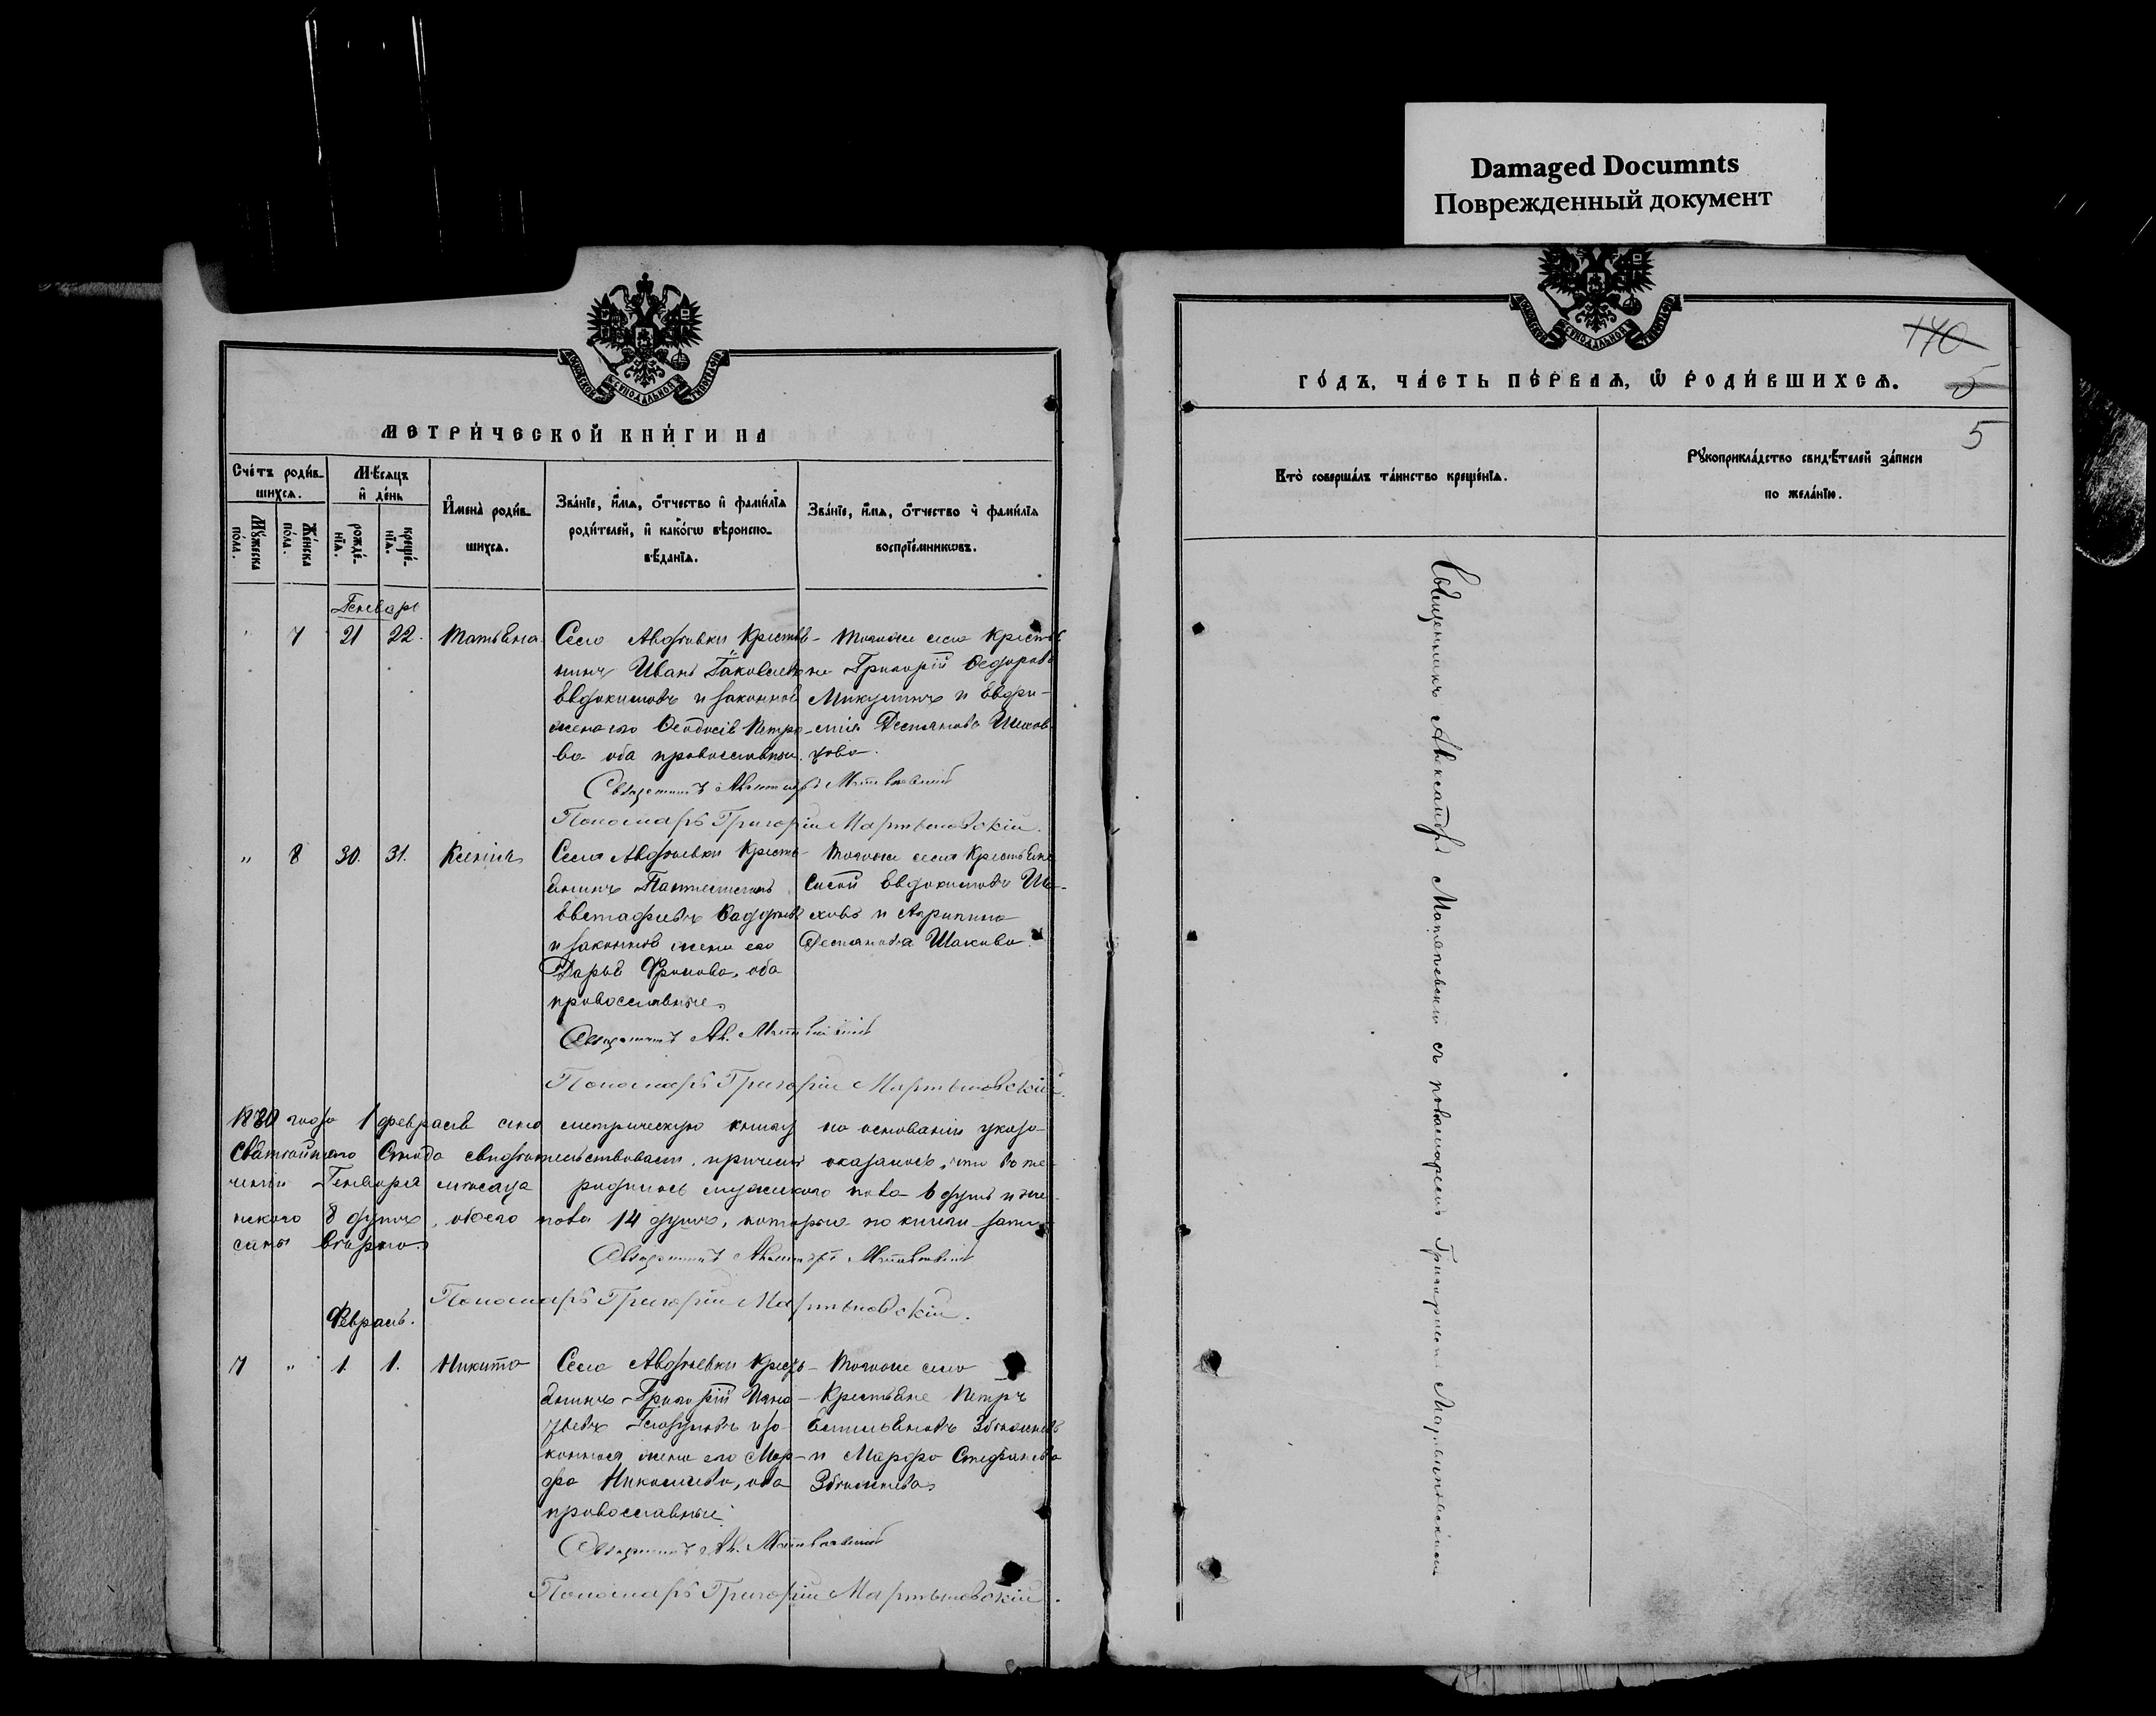 Damaged Documnts
Поврежденный документ
МЕТРИ́ЧЕСКОЙ КНИ́ГИ НА
Сче́тъ роди́в-
шихся.
Мѣ́сяцъ
и҆ де́нь
Мꙋ́жеска
по́ла.
Же́нска
по́ла.
рожде́-
нїѧ.
креще́-
нїѧ.
И҆мена̀ роди́в-
шихсѧ.
Зва́нїе, и҆́мѧ, ѻ҆́тчество и҆ фами́лїѧ
роди́телей, и҆ како́гѡ вѣроиспо-
вѣ́данїѧ.
Зва́нїе, и҆́мѧ, ѻ҆́тчество и҆ фами́лїѧ
воспрїе́мникѡвъ.
Генварь
" 7 21 22. Татьяна
Села Авдѣевки Крестья-
нинъ Иванъ Іаковлевъ
Евдокимовъ и законная
жена его Ѳеодосія Петро-
ва оба православные.
Тогоже села Крестья
не Григорій Ѳедоровъ
Микулинъ и Евфи-
мія Демьянова
Священникъ Александръ
Пономарь Григорій Мартыновскій.
" 8 30. 31. Ксенія
Села Авдѣевки Кресть-
янинъ Пантелеимонъ
Евстафіевъ
и законная жена его
Дарья Фролова, оба
православные.
Тогоже села Крестьяне
Сисой Евдокимовъ Ша-
ховъ и Агрипина
Демьянова Шахова.
Священникъ Ал.
Пономарь Григорій Мартыновскій.
1880 года 1 февраля сію метрическую книгу на основаніи указа
Святѣйшаго Сѵнода свидѣтельствовали, причемъ оказалось, что въ те-
ченіи Генваря мѣсяца родилось мужскаго пола 6 душъ и же-
нскаго 8 душъ, обоего пола 14 душъ, которые по книги запи-
саны вѣрно.
Священникъ Александръ
Пономарь Григорій Мартыновскій.
Февраль.
7 " 1. 1. Никита
Села Авдѣевки Кресть-
янинъ Григорій
и за-
конная жена его Мар-
фа Николаева, оба
православные
Тогоже села
Крестьяне Петръ
Емельяновъ
и Марфа Стефанова
Священникъ Ал.
Пономарь Григорій Мартыновскій.
ГО́ДЪ, ЧА́СТЬ ПЕ́РВАѦ, Ѽ РОДИ́ВШИХСѦ.
140
5
5
Кто̀ соверша́лъ та́инство креще́нїѧ.
Рꙋкоприкла́дство свидѣ́телей за́писи
по жела́нїю.
Священникъ Александръ съ пономаремъ Григоріемъ Мартыновскимъ